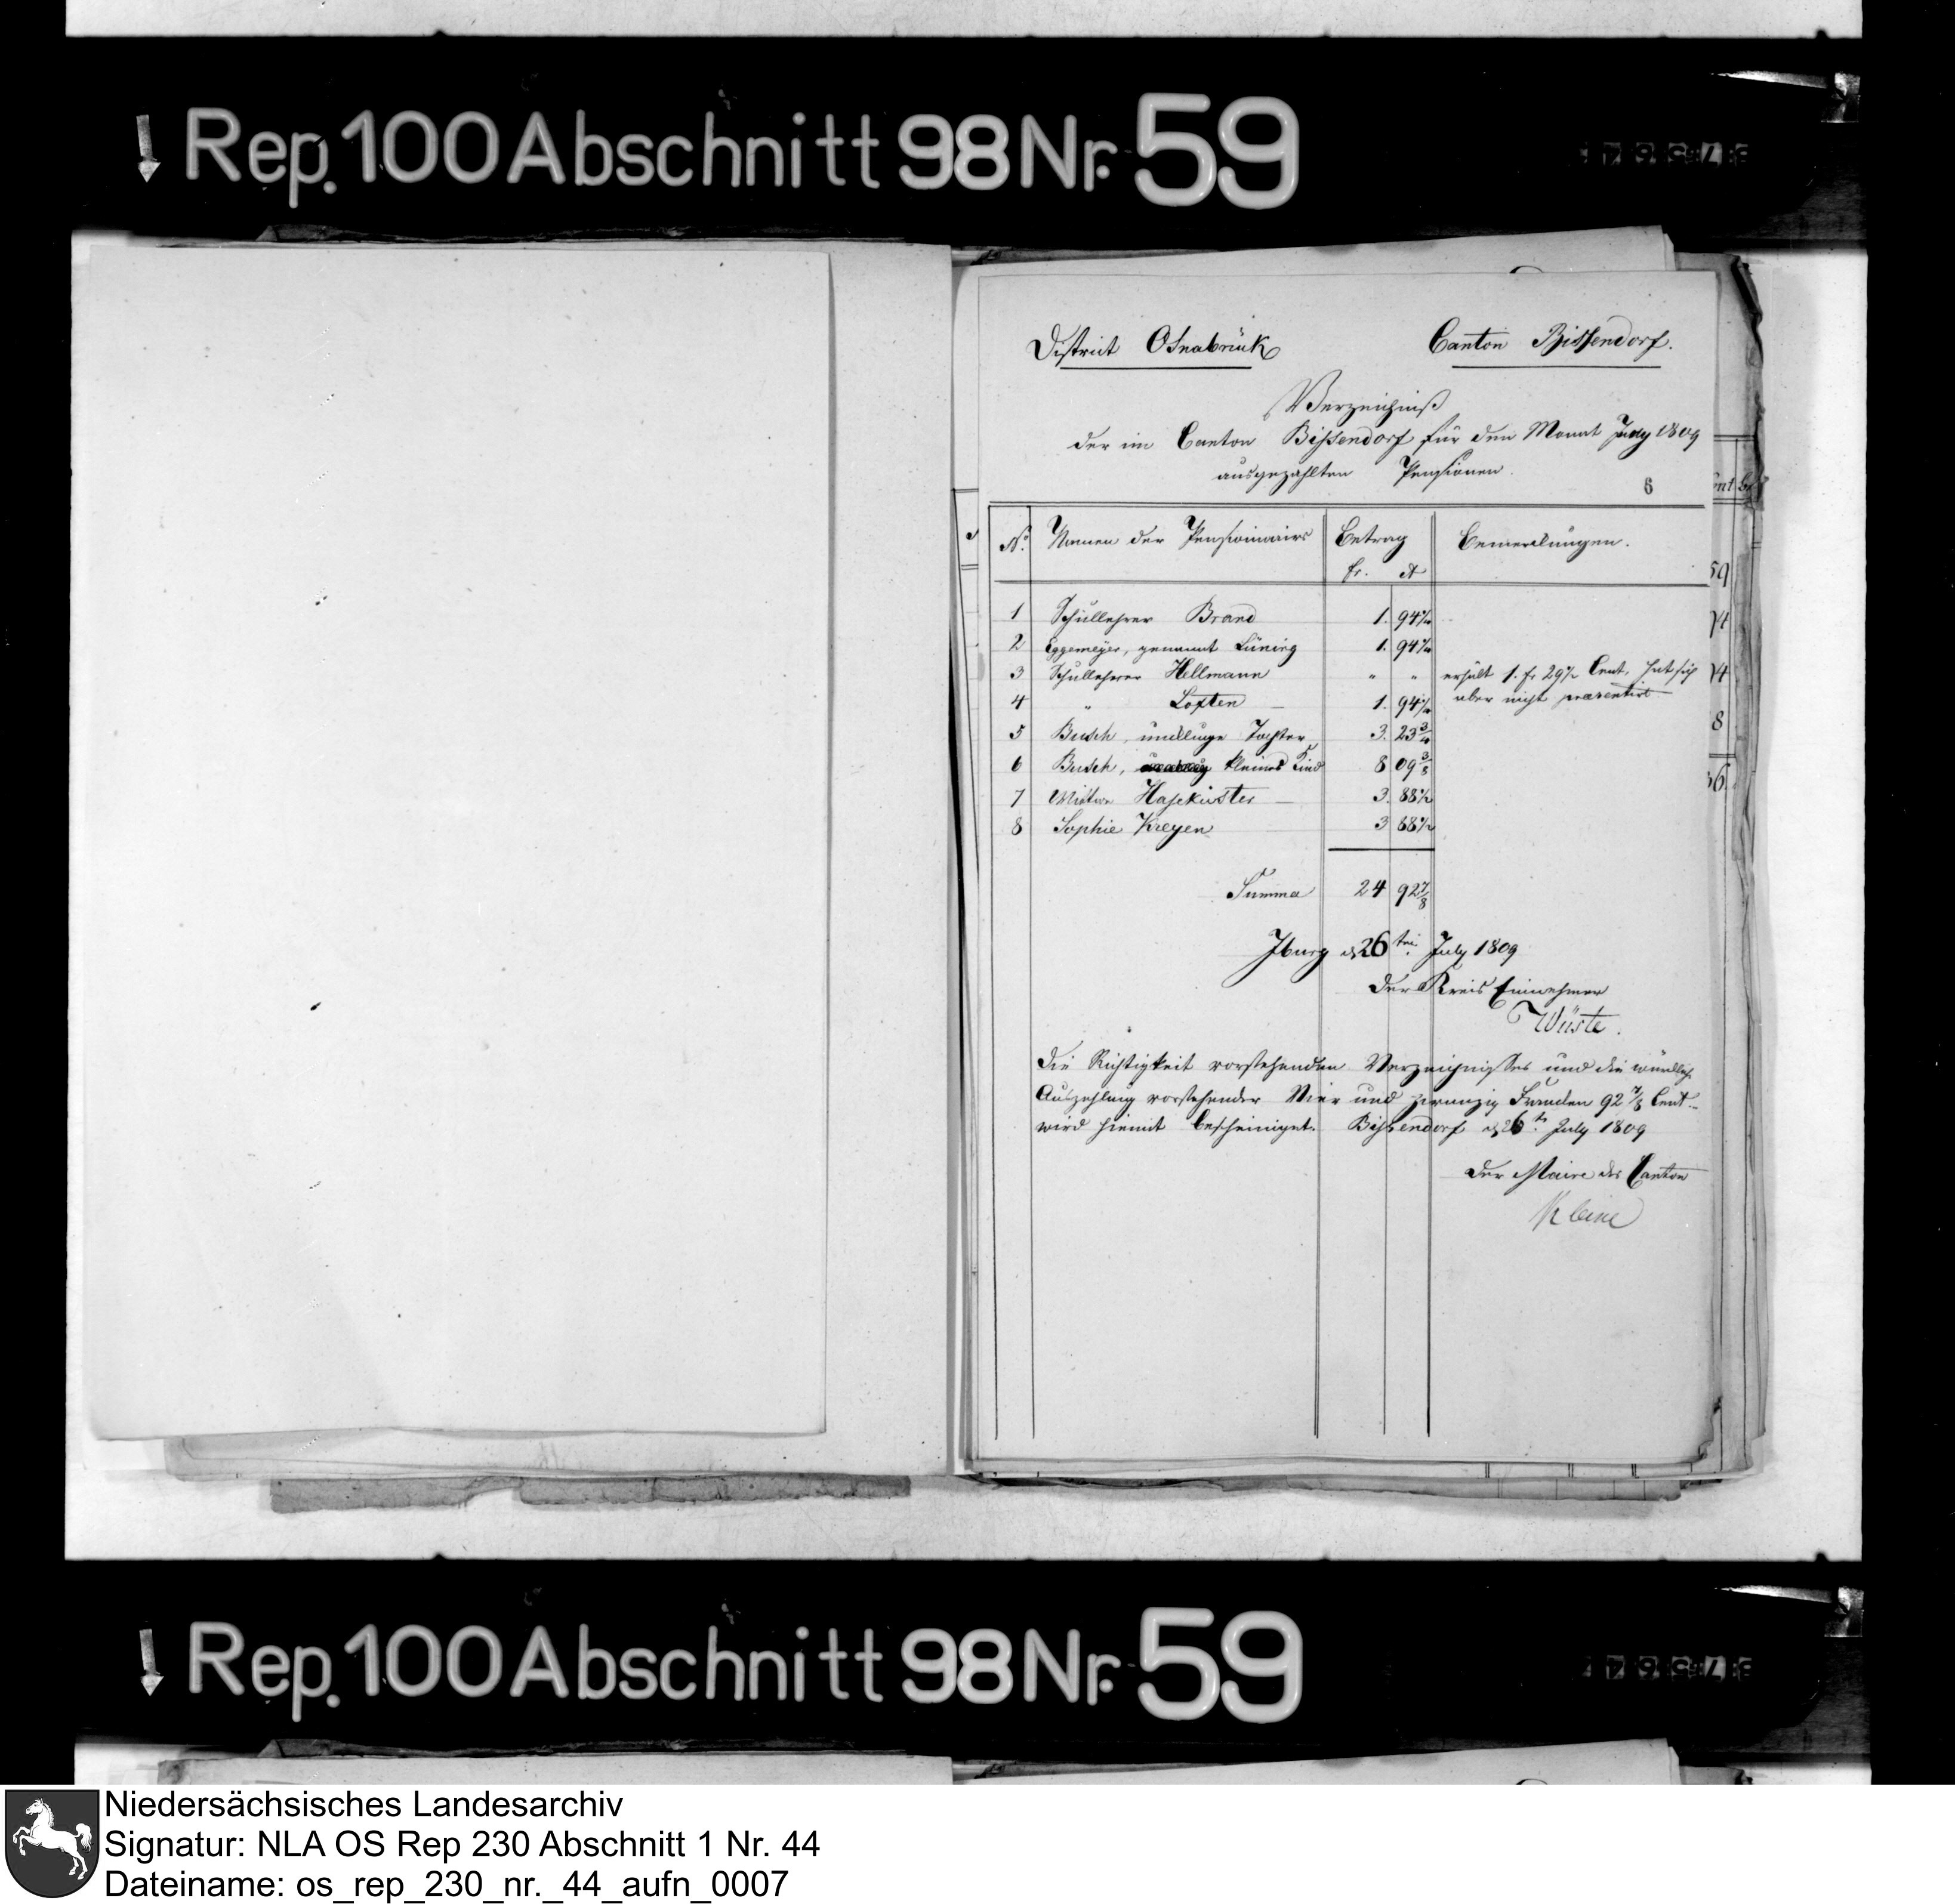 Rep. 100 Abschnitt 98 Nr. 59
District Osnabrück
Canton Bissendorf.
Verzeichniß
der im Canton Bissendorf für den Monat July 1809
ausgezahlten Pensionen.
6
No. Namen der Pensionairs Betrag Bemerkungen.
fr. ct
1 Schullehrer Brand 1. 94 1/4
2 Eggemeyer, genannt Lüning 1. 94 1/4
3 Schullehrer Hellmann " " erhält 1. fr 29 1/2 Cent, hat sich
aber nicht praesentirt
4 " Loxten 1. 94 1/4
5 Busch, Tochter 3. 23 3/4
6 Busch, kleines Kind 8 09 3/8
7 Wittwe Hasekuster 3. 88 1/2
8 Sophie Kreyen 3 88 1/2
Summa 24 92 7/8
Iburg d 26ten July 1809
Der Kreis Einnehmer
Wüste.
Die Richtigkeit vorstehenden Verzeichnisses und die würkliche
Auszahlung vorstehender Vier und zwanzig Franken 92 7/8 Cent.
wird hiemit bescheiniget. Bissendorf d 26ten July 1809
Der Maire des Canton
Kleine
Rep. 100 Abschnitt 98 Nr. 59
Niedersächsisches Landesarchiv
Signatur: NLA OS Rep 230 Abschnitt 1 Nr. 44
Dateiname: os_rep_230_nr._44_aufn_0007